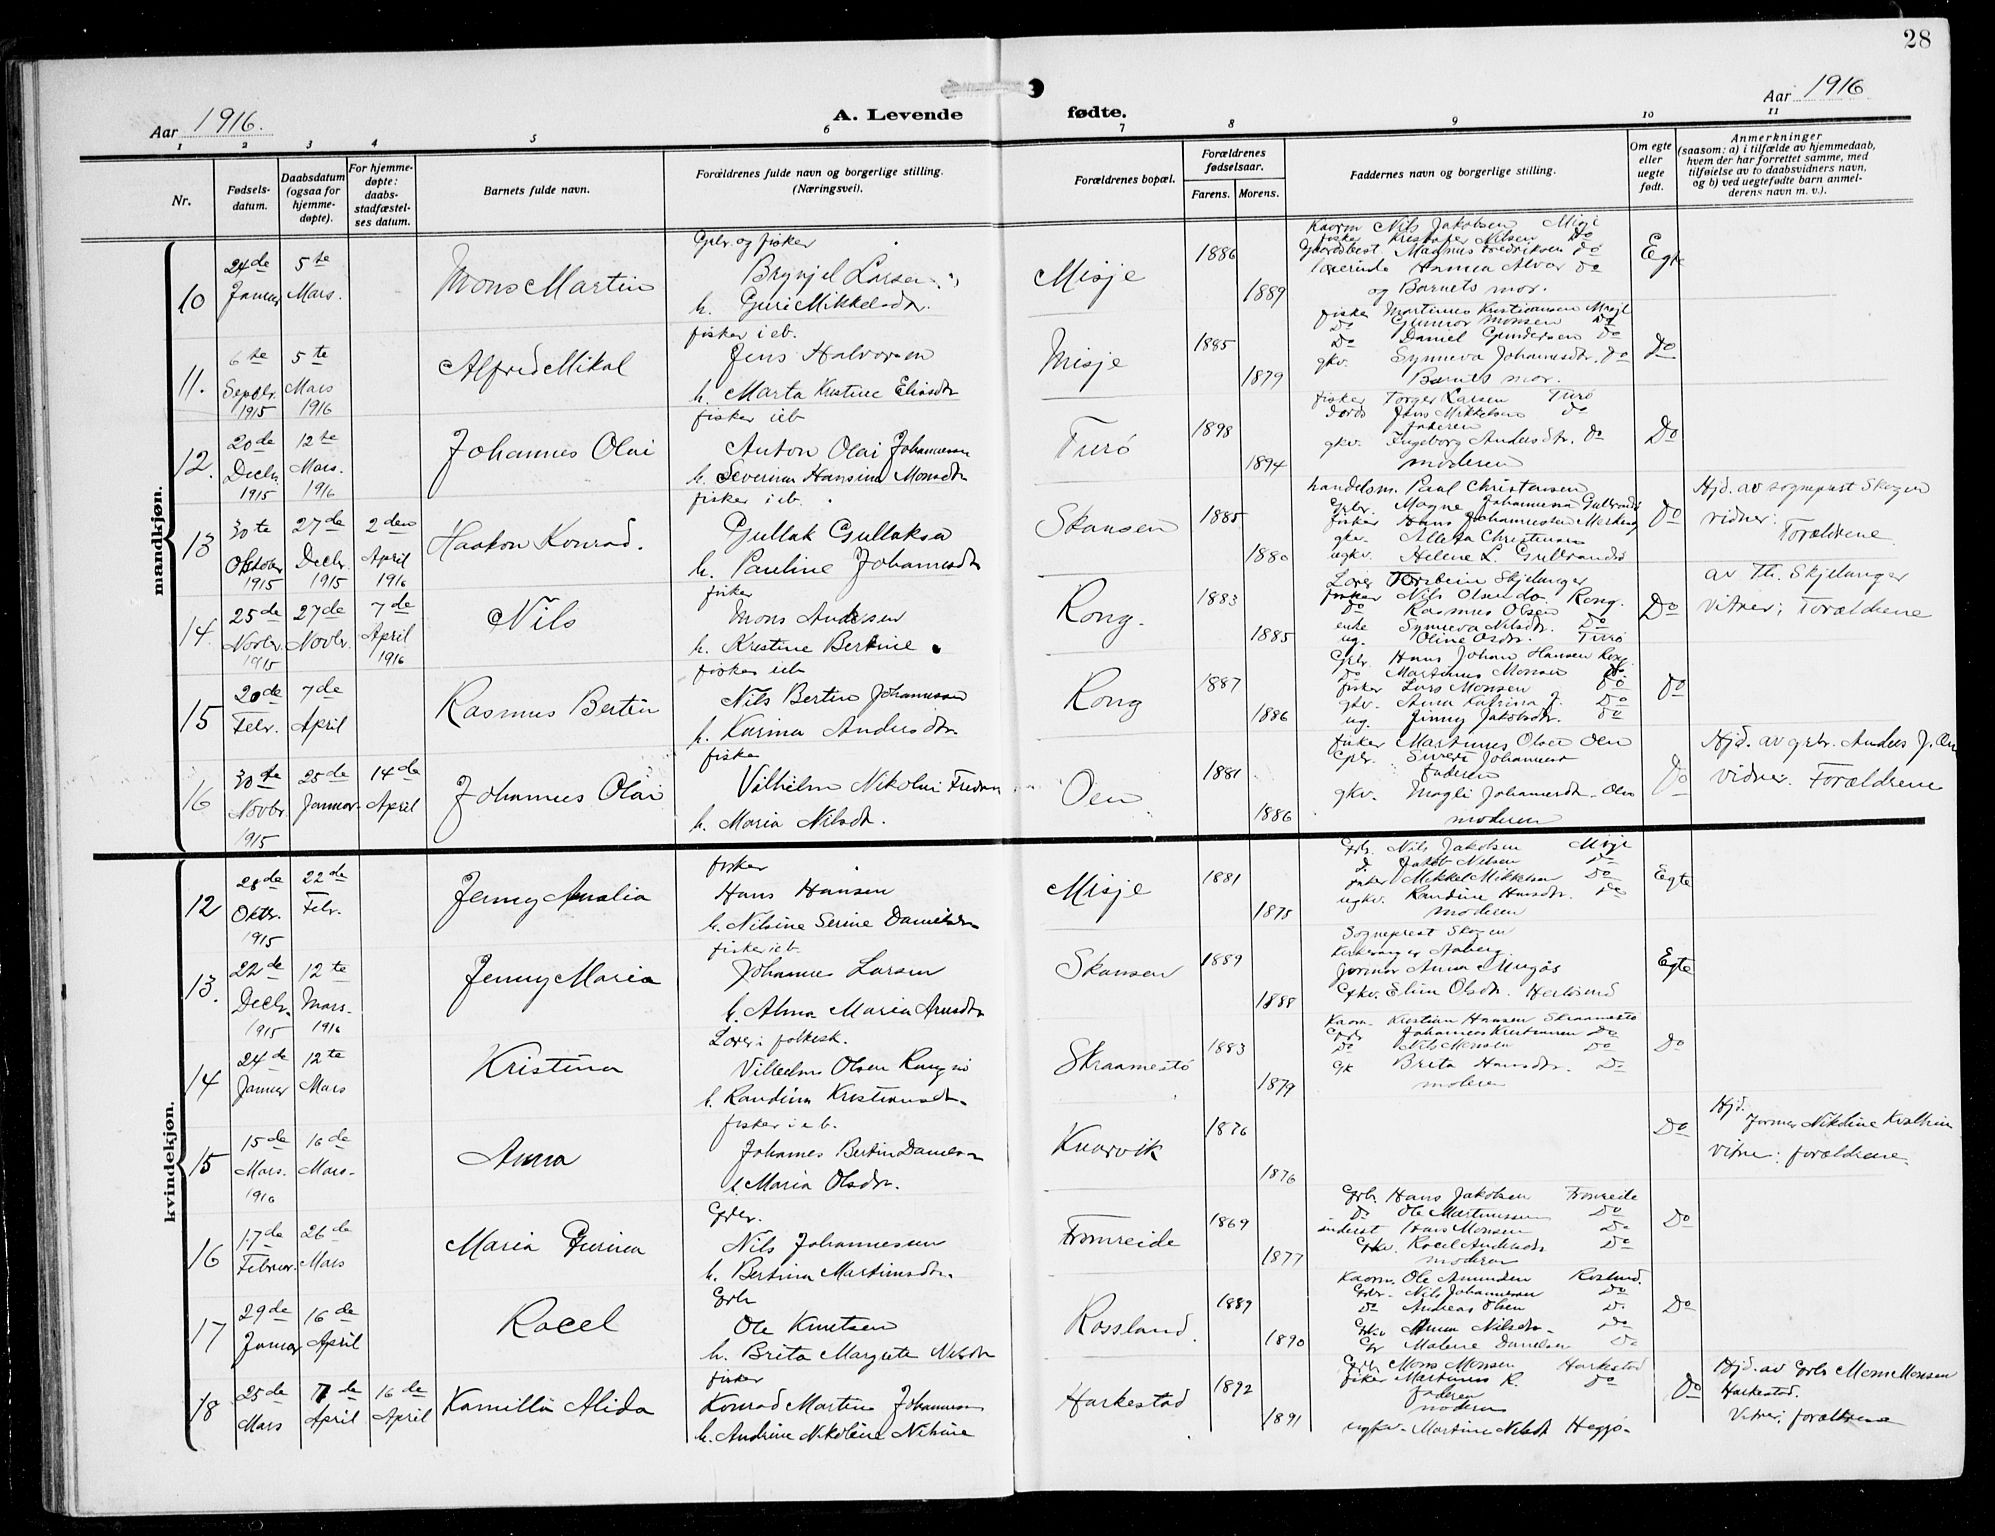 28
Aar 1916.
A. Levende fødte.
Aar 1916
1 2 3 4 5 6 7 8 9 10 11
Nr.
Fødsels-
datum.
Daabsdatum
(ogsaa for
hjemme-
døpte).
For hjemme-
døpte:
daabs
stadfæstel-
ses datum.
Barnets fulde navn.
Forældrenes fulde navn og borgerlige stilling.
(Næringsvei).
Forældrenes bopæl.
Forældrenes
fødselsaar.
Farens. Morens.
Faddernes navn og borgerlige stilling.
Om egte
eller
uegte
født.
Anmerkninger
(saasom: a) i tilfælde av hjemmedaab,
hvem der har forrettet samme, med
tilføielse av to daabsvidners navn,
og b) ved uegtefødte barn anmel-
derens navn m. v.).
mandkjøn.
10
24de
Januar
5te
Mars.
Mons Martin
Gbr. og fisker
Brynjel Larsen
h. Guri Mikkelsdr.
Misje
1886
1889
Kaarm Nils Jakobsen Misje
fisker Kristofer Nilsen Do
Magnus Fredriksen Do
lærerinde Hanna Alver Do
og Barnets mor.
Egte
11.
6te
Septbr.
1915
5te
Mars
1916
Alfred Mikal
fisker i eb.
Jens Halvorsen
h. Marta Kristine Eliasdr
Misje
1885
1879
fisker Martinus Kristiansen Misje
Do Gunnar Monsen Do
Do Daniel Gundersen Do
gkv. Synneva Johannesdr. Do
Barnets mor.
Do
12.
20de
Decbr.
1915
12te
Mars.
1916
Johannes Olai
fisker i eb
Anton Olai Johannessen
h. Severina Hansine Monsdr
Turø
1898
1894
fisker Torger Larsen Turø
Jens Mikkelsen Do
faderen
gkv. Ingeborg Andersdtr. Do
moderen
Do
13
30te
Oktober
1915
27de
Decbr.
1915
2den
April
1916
Haakon Konrad.
fisker i eb.
Gullak Gullaksen
h. Pauline Johannesdr
Skansen
1885
1880
handelsm. Paul Christensen
Gbr. Magne Johannessen
fisker Hans Johannessen
gkv. Christensen
ugkv. Helene L.
Do
Hjd. av sogneprest Skogen
vidner:
Forældrene.
14.
25de
Novbr.
1915
27de
Novbr.
7de
April
1916
Nils
fisker
Mons Andersen
h. Kristine Bertine
Rong.
1883
1885
Lærer Torbein Skjelanger
fisker Nils Olsen do Rong.
Do Rasmus Olsen
enke Synneva Nilsdr. Do
ug. Oline Osdr. Turø
Do
av Th. Skjelanger
vitner; Forældrene
15
20de
Febr.
7de
April
Rasmus Bertin
fisker i eb
Nils Bertin Johannessen
h. Karina Andersdr
Rong
1887
1886
Gbr. Hans Johan Hansen Rong
Do Martinus Monsen Do
fisker Lars Monsen Do
gkv. Anna Katrina J. Do
ug. Jinny Jakobsdr. Do
Do
16
30te
Novbr
1915
25de
Januar
14de
April
Johannes Olai
fisker
Vilhelm Nikolai
h. Maria Nilsdr.
Oen
1881
1886
fisker Martinus Olsen Oen
Gbr. Sivert Johannessen
faderen
gkv. Magli Johannesdr. Oen
moderen
Do
Hjd. av gbr. Anders J. Oen
vidner. Forældrene
kvindekjøn.
12
28de
Oktbr.
1915
22de
Febr.
Jenny Amalia
fisker
Hans Hansen
h. Nilsine Serine Danielsdr
Misje
1881
1875
Grb. Nils Jakobsen Misje
Jakob Nilsen Do
fisker Mikkel Mikkelsen Do
ugkv. Randine Hansdr. Do
moderen
Egte
13.
22de
Decbr.
1915
12te
Mars.
1916
Jenny Maria
fisker i eb
Johannes Larsen
h. Alma Maria Arnesdr
Skansen
1889
1888
Sogneprest Skogen
Kirkesanger Aaberg
jormor Anna
Gkv. Elim Olsdr. Herlösund
Egte
14
24de
Januar
12te
Mars
Kristina
Lærer i folkesk.
Vilhelm Olsen
h. Randine Kristiansdr.
Skraamestø
1883
1879
Kaarm. Kristian Hansen Skraamestø
Grb Johannes Kristiansen Do
Do Nils Monsen Do
Gk Brita Hansdr. Do
moderen
Do
15
15de
Mars.
1916
16de
Mars.
Anna
fisker i eb.
Johannes Bertin Danielsen
h. Maria Olsdr.
Knarvik
1876
1876
Do
Hjd.
jormor Nikoline Kvalheim
vitne: forældrene.
16
17de
Februar.
26de
Mars
Maria Gurina
Grbr.
Nils Johannesen
h. Bertina Martinusdr.
Fromreide
1869
1877
Grb. Hans Jakobsen Fromreide
Do Ole Martinussen Do
inderst Hans Monsen Do
Gkv. Racel Andersdr Do
moderen
Do
17
29de
Januar
16de
April
Racel
Grb
Ole Knutsen
h. Brita Margrete Nilsdr
Rossland.
1889
1890
Kaarm. Ole Amundsen Rosland.
Grbr. Nils Johannessen Do
Do Andreas Olsen Do
Gkv Anna Nilsdr. Do
Gr Malene Danielsen Do
Do
18
25de
Mars
7de
April
16de
April
Kamilla Alida
fisker
Konrad Martin Johannessen
h. Andrine Nikoline Nilsine
Harkestad
1892
1891
Grb Mons Monsen Harkestad
fisker Martinus R. Do
faderen
moderen
ugkv. Martine Nilsdr Heggø.
Do
Hjd. av Grb Mons Monsen
Harkestad.
Vitner, forældrene